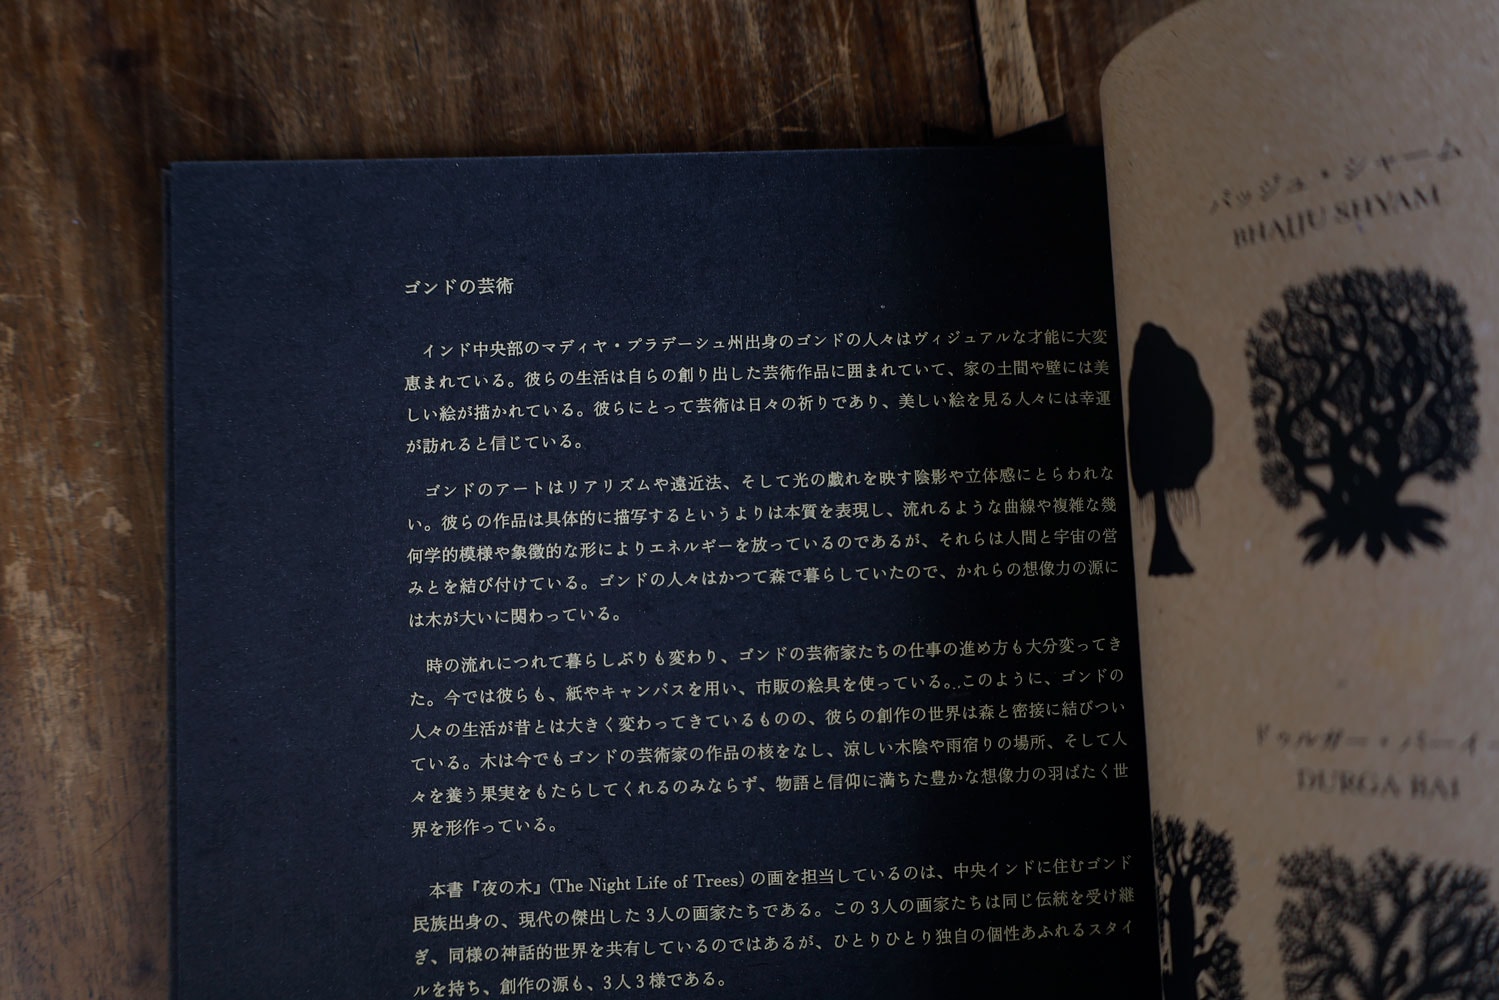 ゴンドの芸術
インド中央部のマディヤ・プラデーシュ州出身のゴンドの人々はヴィジュアルな才能に大変
恵まれている。彼らの生活は自らの創り出した芸術作品に囲まれていて、家の土間や壁には美
しい絵が描かれている。彼らにとって芸術は日々の祈りであり、美しい絵を見る人々には幸運
が訪れると信じている。
ゴンドのアートはリアリズムや遠近法、そして光の戯れを映す陰影や立体感にとらわれな
い。彼らの作品は具体的に描写するというよりは本質を表現し、流れるような曲線や複雑な幾
何学的模様や象徴的な形によりエネルギーを放っているのであるが、それらは人間と宇宙の営
みとを結び付けている。ゴンドの人々はかつて森で暮らしていたので、かれらの想像力の源に
は木が大いに関わっている。
時の流れにつれて暮らしぶりも変わり、ゴンドの芸術家たちの仕事の進め方も大分変ってき
た。今では彼らも、紙やキャンバスを用い、市販の絵具を使っている。このように、ゴンドの
人々の生活が昔とは大きく変わってきているものの、彼らの創作の世界は森と密接に結びつい
ている。木は今でもゴンドの芸術家の作品の核をなし、涼しい木陰や雨宿りの場所、そして人
々を養う果実をもたらしてくれるのみならず、物語と信仰に満ちた豊かな想像力の羽ばたく世
界を形作っている。
本書『夜の木』(The Night Life of Trees) の画を担当しているのは、中央インドに住むゴンド
民族出身の、現代の傑出した3人の画家たちである。この3人の画家たちは同じ伝統を受け継
ぎ、同様の神話的世界を共有しているのではあるが、ひとりひとり独自の個性あふれるスタイ
ルを持ち、創作の源も、3人3様である。
バッジュ・シャーム
BHAJJU SHYAM
ドゥルガー・バーイー
DURGA BAI